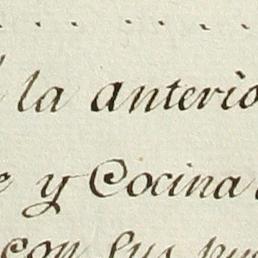 la anterio
e y Cocina
con sus